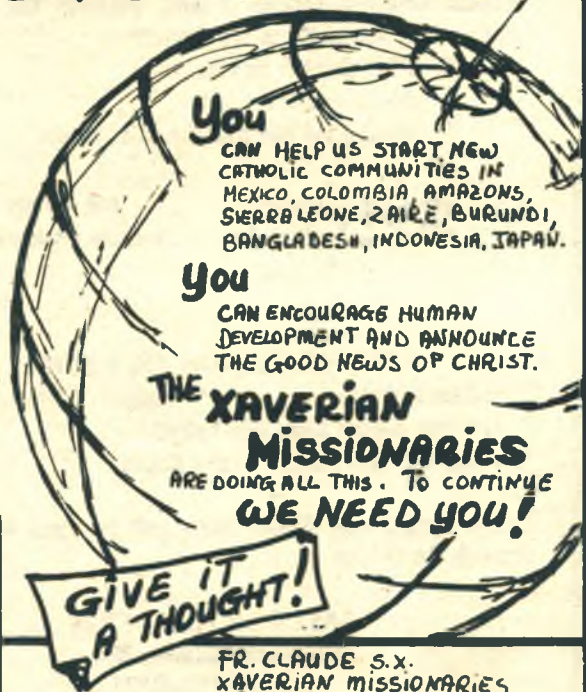 You
CAN HELP US START NEW
CATHOLIC COMMUNITIES IN
MEXICO, COLOMBIA AMAZONS,
SIERRA LEONE, ZAIRE, BURUNDI,
BANGLADESH, INDONESIA, JAPAN.
You
CAN ENCOURAGE HUMAN
DEVELOPMENT AND ANNOUNCE
THE GOOD NEWS OF CHRIST.
THE XAVERIAN
MISSIONARIES
ARE DOING ALL THIS. TO CONTINUE
WE NEED YOU!
GIVE IT
A THOUGHT!
FR. CLAUDE S.X.
XAVERIAN MISSIONARIES